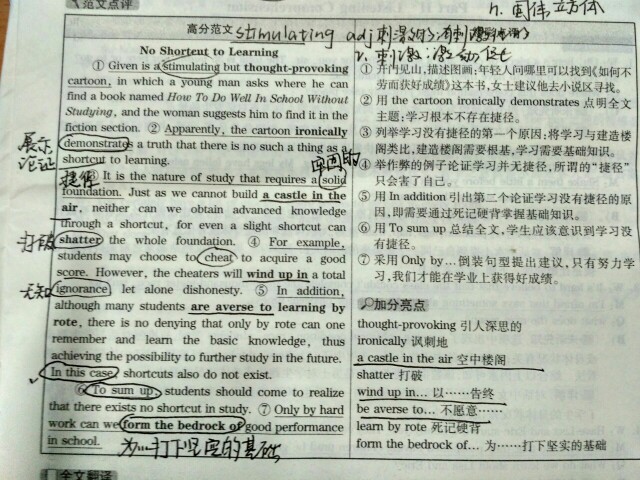 范文点评
n. 固体 立方体
高分范文 stimulating adj 刺激的
v. 刺激;激励
No Shortcut to Learning
① Given is a stimulating but thought-provoking
cartoon, in which a young man asks where he can
find a book named How To Do Well In School Without
Studying, and the woman suggests him to find it in the
fiction section. ② Apparently, the cartoon ironically
展示 demonstrates a truth that there is no such a thing as a
论证
shortcut to learning.
捷径
坚固的
③ It is the nature of study that requires a solid
foundation. Just as we cannot build a castle in the
air, neither can we obtain advanced knowledge
through a shortcut, for even a slight shortcut can
打破 shatter the whole foundation. ④ For example,
students may choose to cheat to acquire a good
score. However, the cheaters will wind up in a total
无知 ignorance let alone dishonesty. ⑤ In addition,
although many students are averse to learning by
rote, there is no denying that only by rote can one
remember and learn the basic knowledge, thus
achieving the possibility to further study in the future.
In this case, shortcuts also do not exist.
⑥ To sum up, students should come to realize
that there exists no shortcut in study. ⑦ Only by hard
work can we form the bedrock of good performance
in school.
为…打下坚实的基础
① 开门见山,描述图画:年轻人问哪里可以找到《如何不
劳而获好成绩》这本书,女士建议他去小说区寻找。
② 用 the cartoon ironically demonstrates 点明全文
主题:学习根本不存在捷径。
③ 列举学习没有捷径的第一个原因;将学习与建造楼
阁类比,建造楼阁需要根基,学习需要基础知识。
④ 举作弊的例子论证学习并无捷径,所谓的“捷径”
只会害了自己。
⑤ 用 In addition 引出第二个论证学习没有捷径的原
因,即需要通过死记硬背掌握基础知识。
⑥ 用 To sum up 总结全文,学生应该意识到学习没
有捷径。
⑦ 采用 Only by…倒装句型提出建议,只有努力学
习,我们才能在学业上获得好成绩。
加分亮点
thought-provoking 引人深思的
ironically 讽刺地
a castle in the air 空中楼阁
shatter 打破
wind up in… 以……告终
be averse to… 不愿意……
learn by rote 死记硬背
form the bedrock of… 为……打下坚实的基础
全文翻译